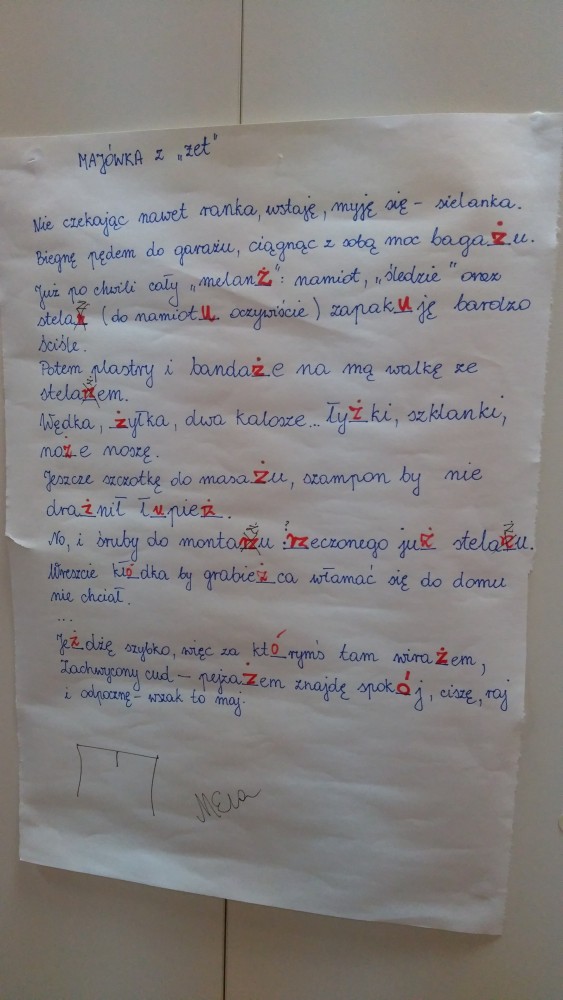 MAJÓWKA z „zet"
Nie czekając nawet ranka, wstaję, myję się - sielanka.
Biegnę pędem do garażu, ciągnąc z sobą moc bagażu.
Już po chwili cały „melanż": namiot, „śledzie" oraz
stelaż (do namiotu oczywiście) zapakuję bardzo
ściśle.
Potem plastry i bandaże na mą walkę ze
stelażem.
Wędka, żyłka, dwa kalosze... łyżki, szklanki,
noże noszę.
Jeszcze szczotkę do masażu, szampon by nie
drażnił łupież.
No, i śruby do montażu rzeczonego już stelaża.
Wreszcie kłódka by grabieżca włamać się do domu
nie chciał.
...
Jeżdżę szybko, więc za którymś tam wirażem,
Zachwycony cud - pejzażem znajdę spokój, ciszę, raj
i odpocznę - wszak to maj.
MEla